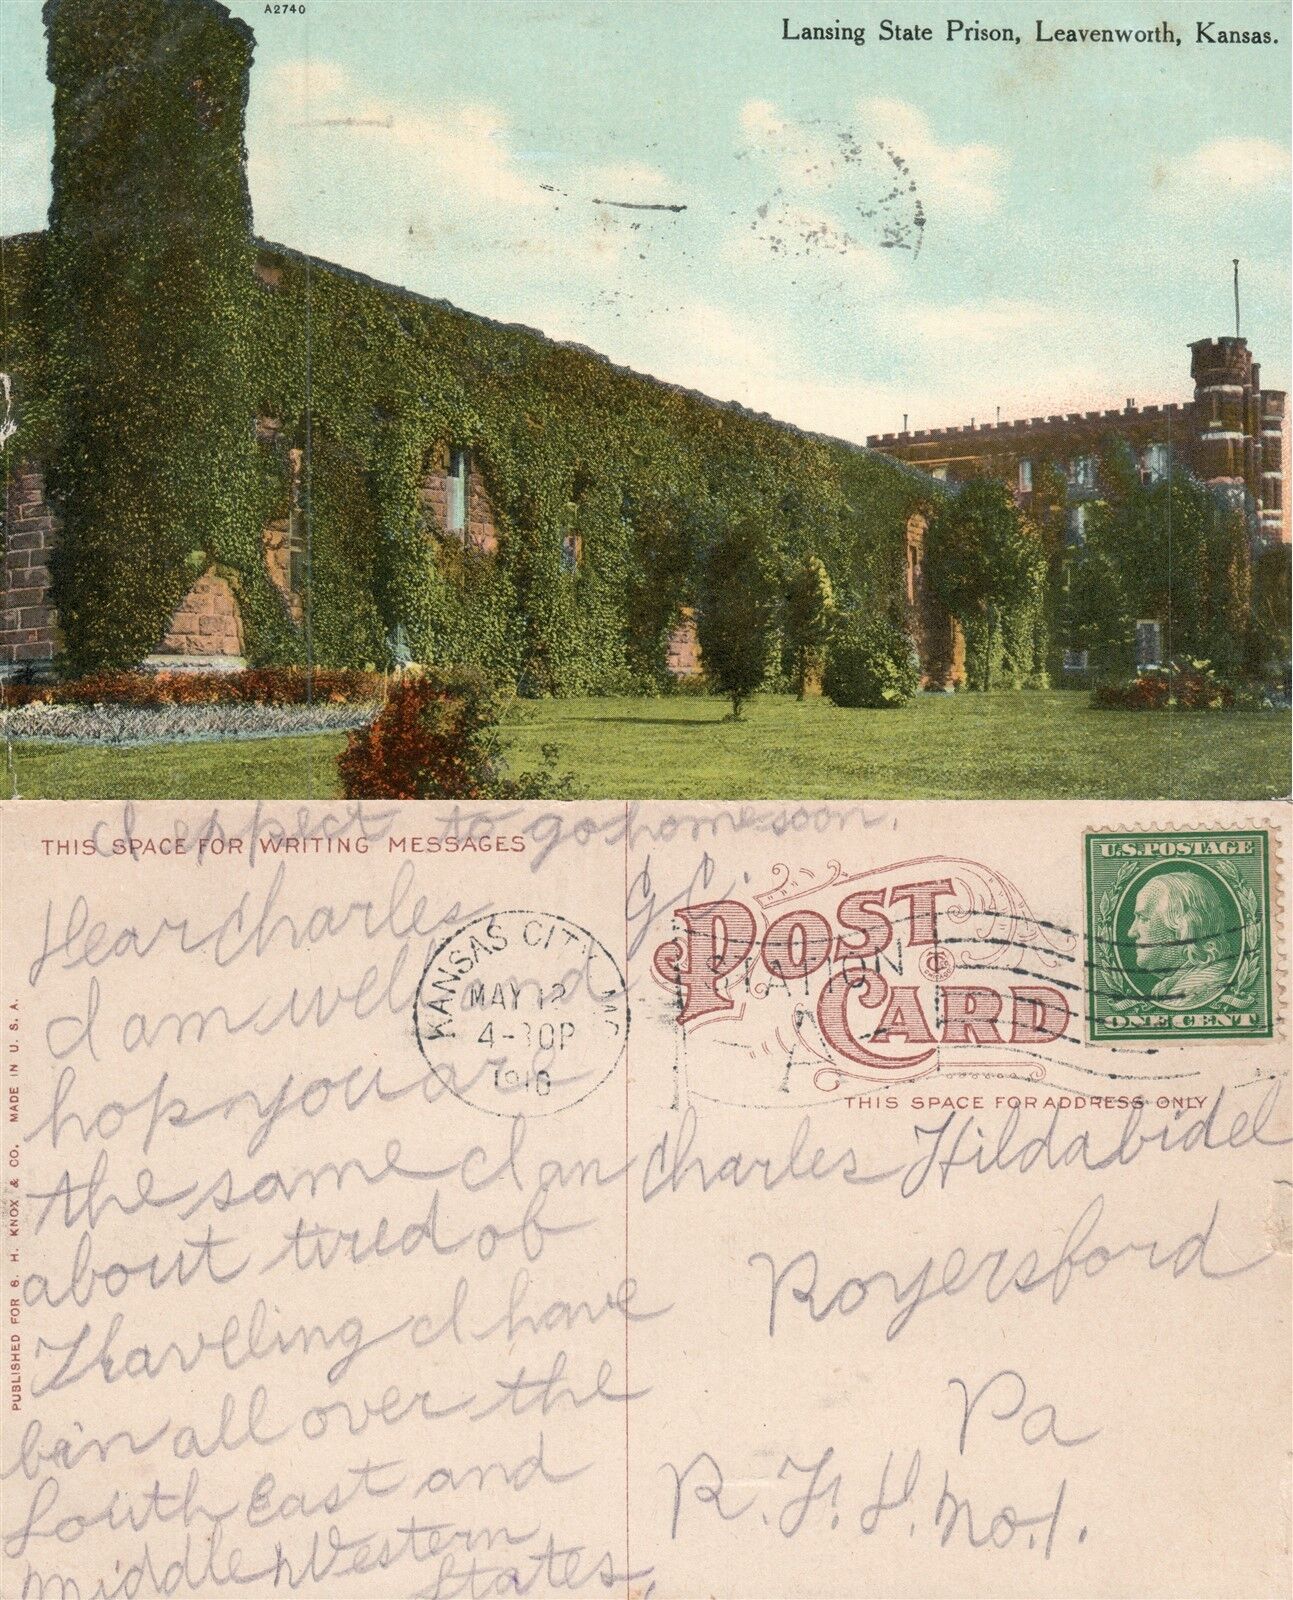 A2740
Lansing State Prison, Leavenworth, Kansas.
I exppect to go home soon.
G.C.
THIS SPACE FOR WRITING MESSAGES
Dear Charles
I am well and
hop you are
the same I an
about tired of
Traveling I have
bin all over the
South East and
Middle Western
States,
PUBLISHED FOR S. H. KNOX & CO. MADE IN U. S. A.
KANSAS CITY, MO.
MAY 12
4-30P
1910
STATION
A
POST CARD
U.S. POSTAGE
ONE CENT
THIS SPACE FOR ADDRESS ONLY
Charles Hildabidel
Royersford
Pa
R. F. D. No. 1.